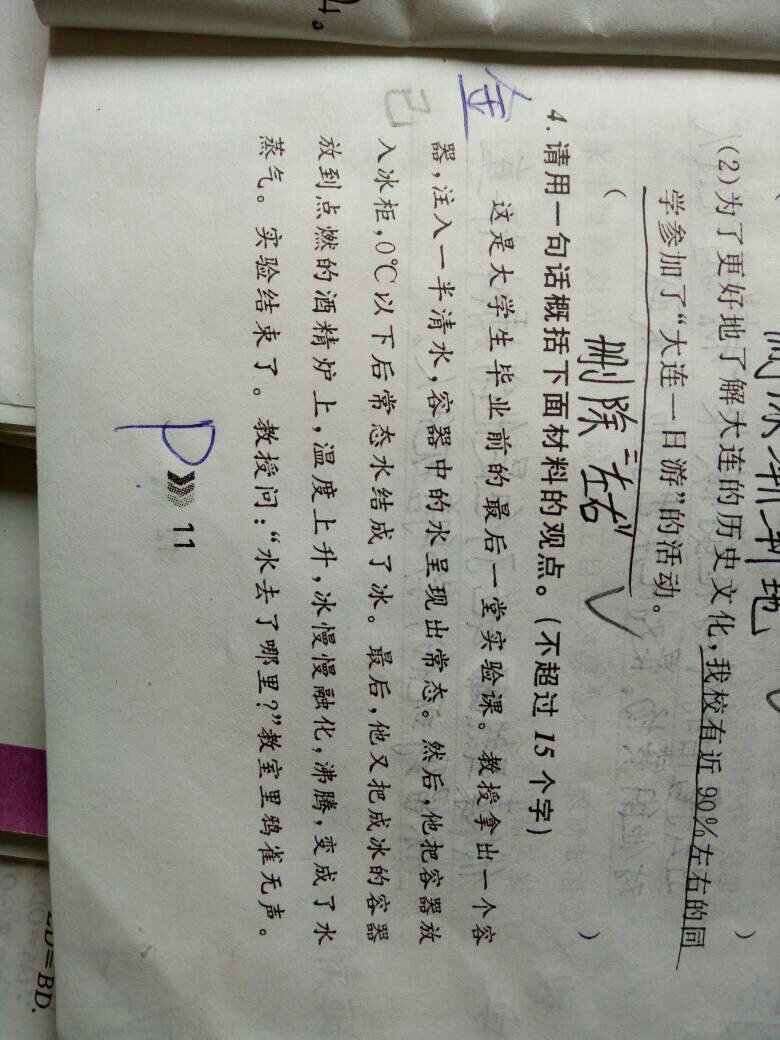 (2)为了更好地了解大连的历史文化,我校有近 90%左右的同
学参加了“大连一日游”的活动。
( 删除“左右” )
4. 请用一句话概括下面材料的观点。(不超过 15 个字)
这是大学生毕业前的最后一堂实验课。教授拿出一个容
器,注入一半清水,容器中的水呈现出常态。然后,他把容器放
入冰柜,0℃以下后常态水结成了冰。最后,他又把成冰的容器
放到点燃的酒精炉上,温度上升,冰慢慢融化,沸腾,变成了水
蒸气。实验结束了。教授问:“水去了哪里?”教室里鸦雀无声。
P
11
=BD.